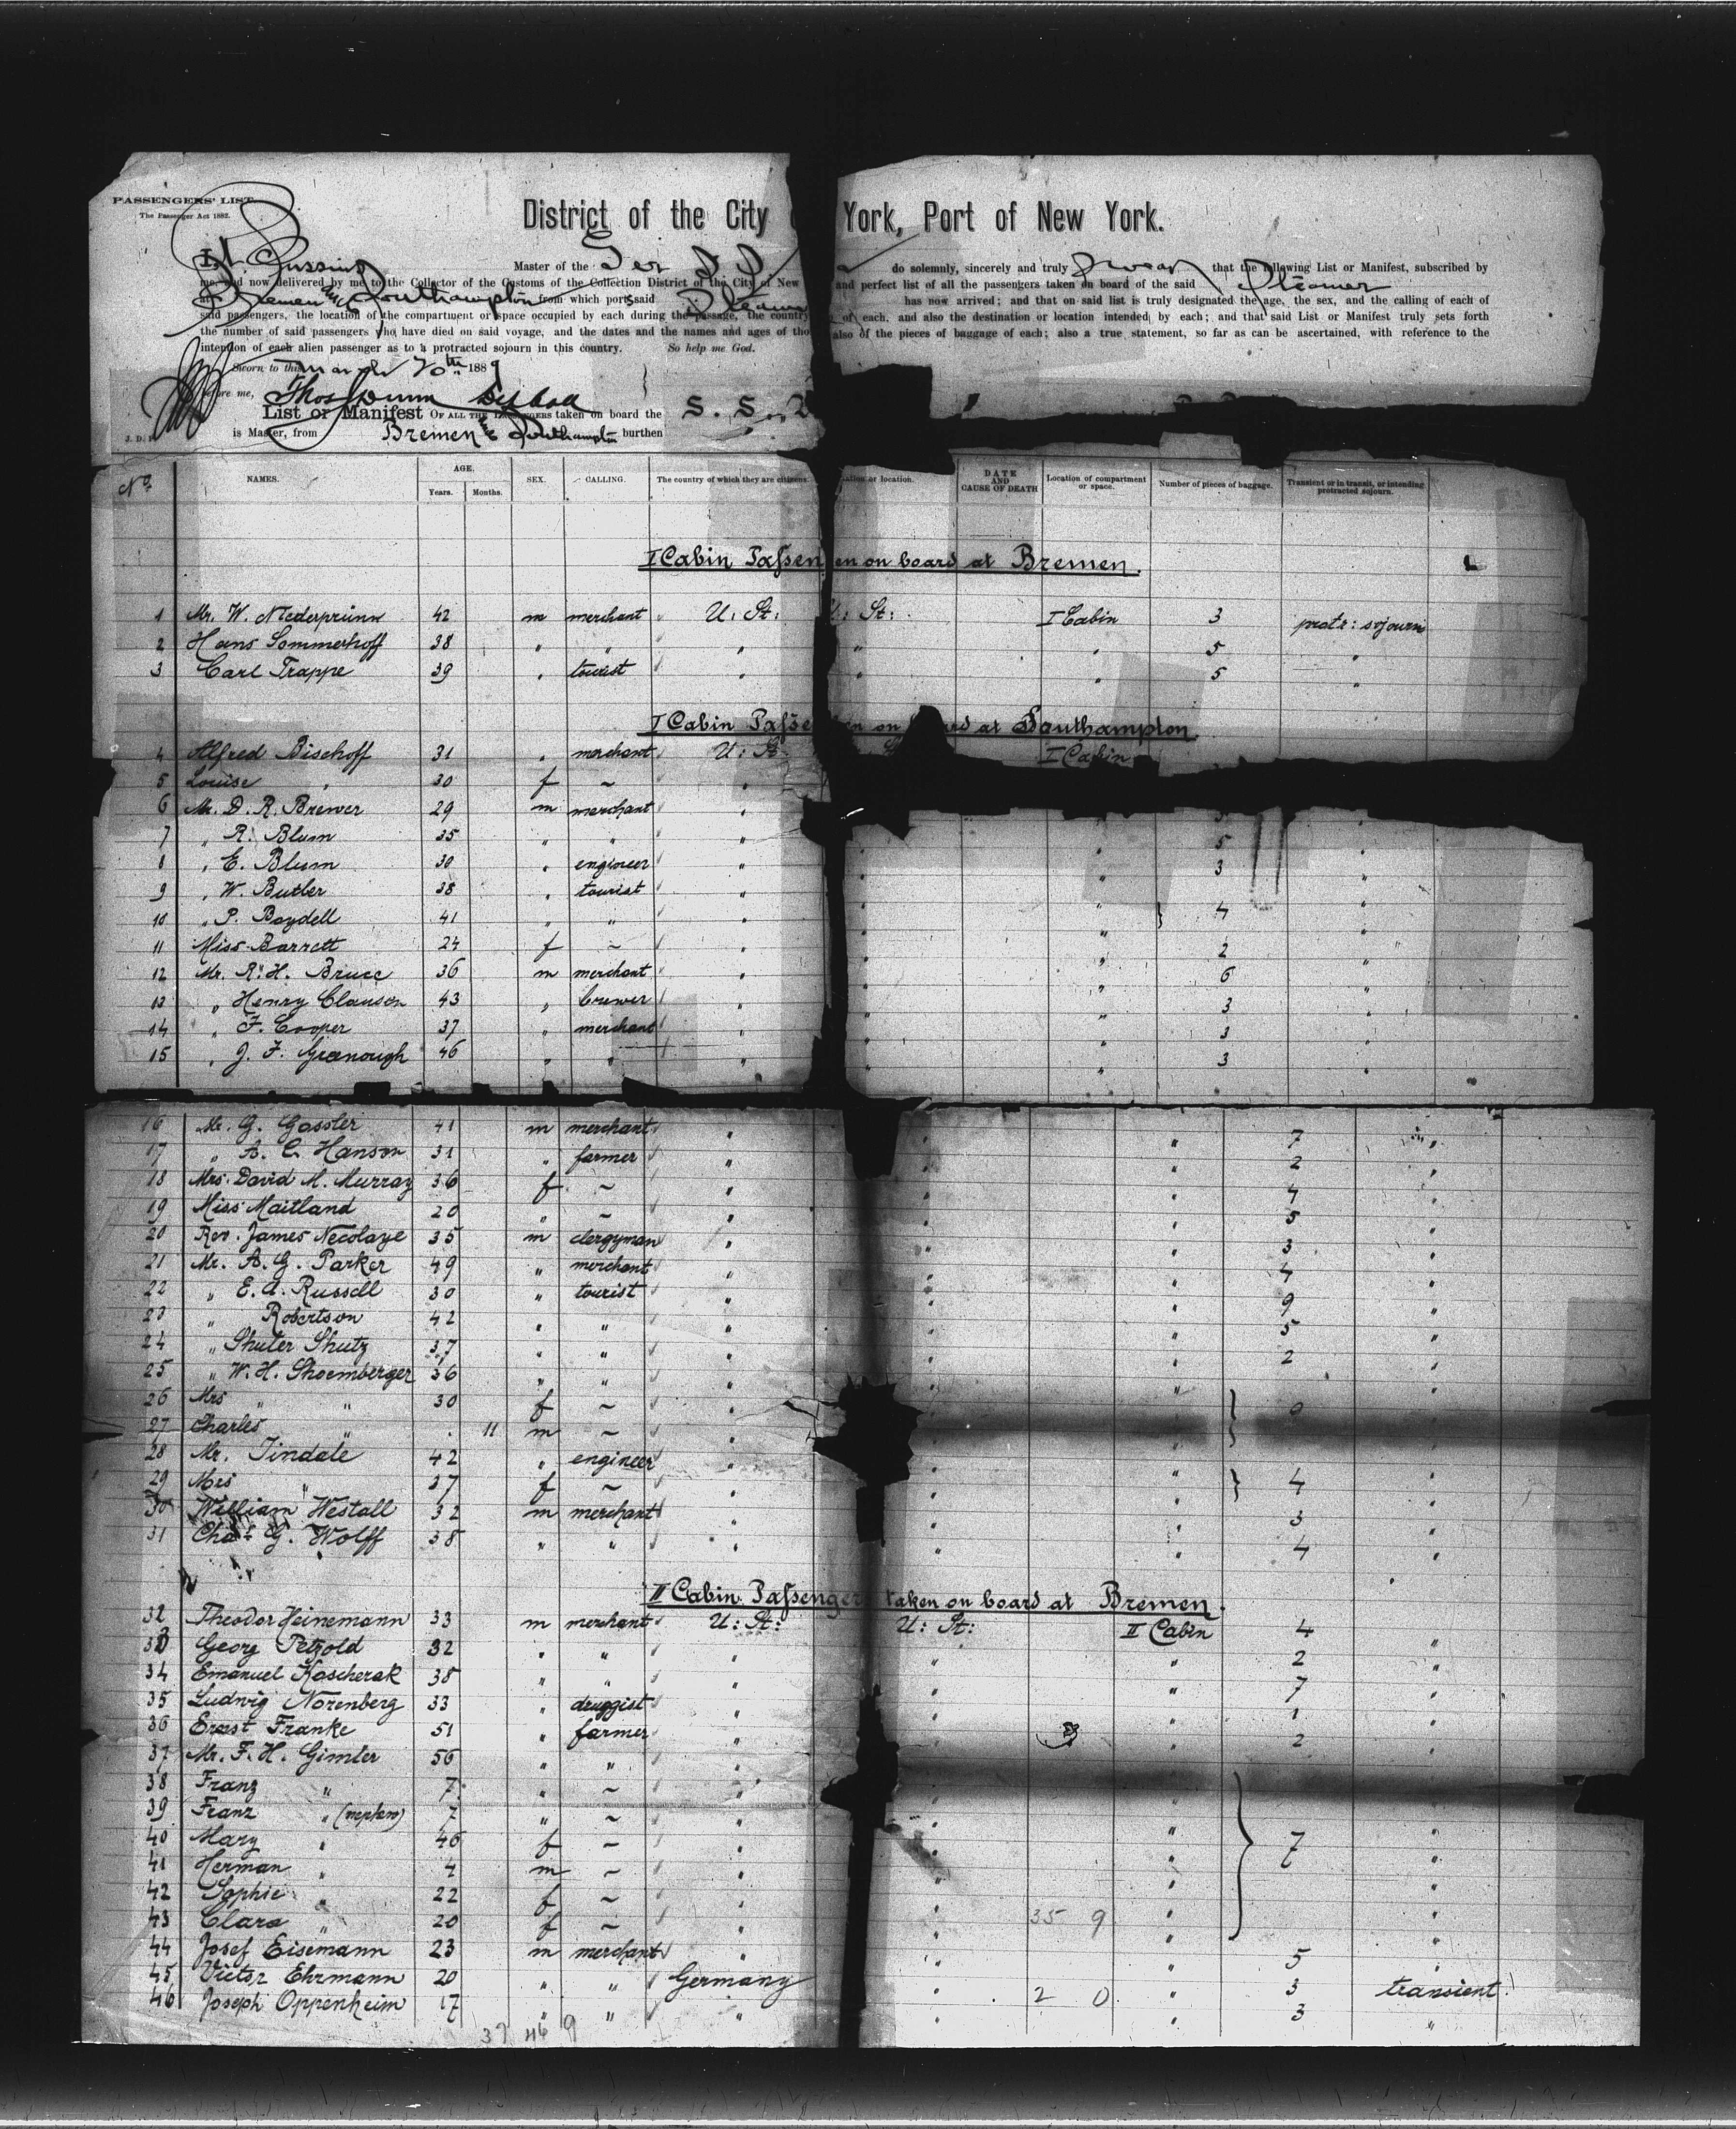 PASSENGERS' LIST.
The Passenger Act 1882.
District of the City York, Port of New York.
I, Master of the do solemnly, sincerely and truly swear that the following List or Manifest, subscribed by
me, and now delivered by me to the Collector of the Customs of the Collection District of the City of New and perfect list of all the passengers taken on board of the said Steamer
Bremen and Southampton from which port said Steamer has now arrived; and that on said list is truly designated the age, the sex, and the calling of each of
said passengers, the location of the compartment or space occupied by each during the passage, the country of each, and also the destination or location intended by each; and that said List or Manifest truly sets forth
the number of said passengers who have died on said voyage, and the dates and the names and ages of also of the pieces of baggage of each; also a true statement, so far as can be ascertained, with reference to the
intention of each alien passenger as to a protracted sojourn in this country. So help me God.
Sworn to this March 20th 1889
before me,
List or Manifest OF ALL THE PASSENGERS taken on board the S. S.
is Master, from Bremen & Southampton burthen
No. NAMES. AGE. Years. Months. SEX. CALLING. The country of which they are citizens. location. DATE AND CAUSE OF DEATH Location of compartment or space. Number of pieces of baggage. Transient or in transit, or intending protracted sojourn.
I Cabin Passen en on board at Bremen.
1 Mr. W. Niederprünn 42 m merchant U: St: U: St: I Cabin 3 protr: sojourn
2 Hans Sommerhoff 38 " " " " " 5 "
3 Carl Trappe 39 " tourist " " " 5 "
I Cabin Passe en on board at Southampton.
4 Alfred Bischoff 31 " merchant U: St I Cabin
5 Louise " 30 f ~ "
6 Mr. D. R. Brewer 29 m merchant "
7 " R. Blum 35 " " " " " 5 "
8 " E. Blum 30 " engineer " " " 3 "
9 " W. Butler 38 " tourist " " " "
10 " P. Boydell 41 " " " " " 4 "
11 Miss Barrett 24 f ~ " " " 2 "
12 Mr. R. H. Bruce 36 m merchant " " " 6 "
13 " Henry Clausen 43 " brewer " " " 3 "
14 " F. Cooper 37 " merchant " " " 3 "
15 " J. F. Greenough 46 " " " " " 3 "
16 Mr. G. Gossler 41 m merchant " " " 7 "
17 " A. C. Hanson 31 " farmer " " " 2 "
18 Mrs. David M. Murray 36 f ~ " " " 4 "
19 Miss Maitland 20 " ~ " " " 5 "
20 Rev. James Necolaye 35 m clergyman " " " 3 "
21 Mr. A. G. Parker 49 " merchant " " " 4 "
22 " E. A. Russell 30 " tourist " " " 9 "
23 " Robertson 42 " " " " " 5 "
24 " Shuter Shutz 37 " " " " " 2 "
25 " W. H. Shoemberger 36 " " " " " "
26 Mrs " " 30 f ~ " "
27 Charles " 11 m ~ " "
28 Mr. Tindale 42 " engineer " " " "
29 Mrs " 37 f ~ " " " 4 "
30 William Westall 32 m merchant " " " 3 "
31 Chas. G. Wolff 38 " " " " " 4 "
II Cabin Passenger taken on board at Bremen.
32 Theodor Heinemann 33 m merchant U: St: U: St: II Cabin 4
33 Georg Petzold 32 " " " " " 2 "
34 Emanuel Koscherak 38 " " " " " 7 "
35 Ludwig Norenberg 33 " druggist " " " 1 "
36 Ernst Franke 51 " farmer " " " 2 "
37 Mr. F. H. Gimter 56 " " "
38 Franz " 7 " ~ " " "
39 Franz " (nephew) 7 " ~ " " " "
40 Mary " 46 f ~ " " " 7 "
41 Herman " 4 m ~ " " " "
42 Sophie " 22 f ~ " " " "
43 Clara " 20 f ~ " " 35 9 " "
44 Josef Eisemann 23 m merchant " " " 5 "
45 Victor Ehrmann 20 " " Germany " " 3 transient
46 Joseph Oppenheim 17 " " " " 2 0 " 3 "
37 46 9